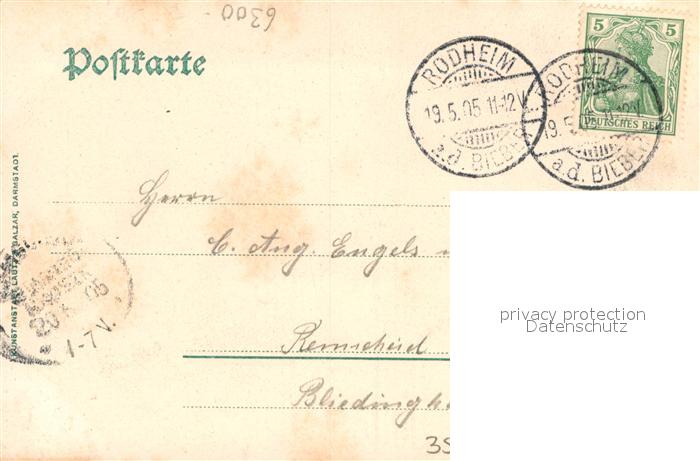 6300
Postkarte
RODHEIM
19.5.05 11-12V.
a.d. BIEBER
RODHEIM
19.5. 11-12V
a.d. BIEBER
5 5
DEUTSCHES REICH
KUNSTANSTALT LAUTZ & BALZAR, DARMSTADT.
Herrn
C. Aug. Engels
05
1-7V.
Remscheid
Bliedingh
privacy protection
Datenschutz